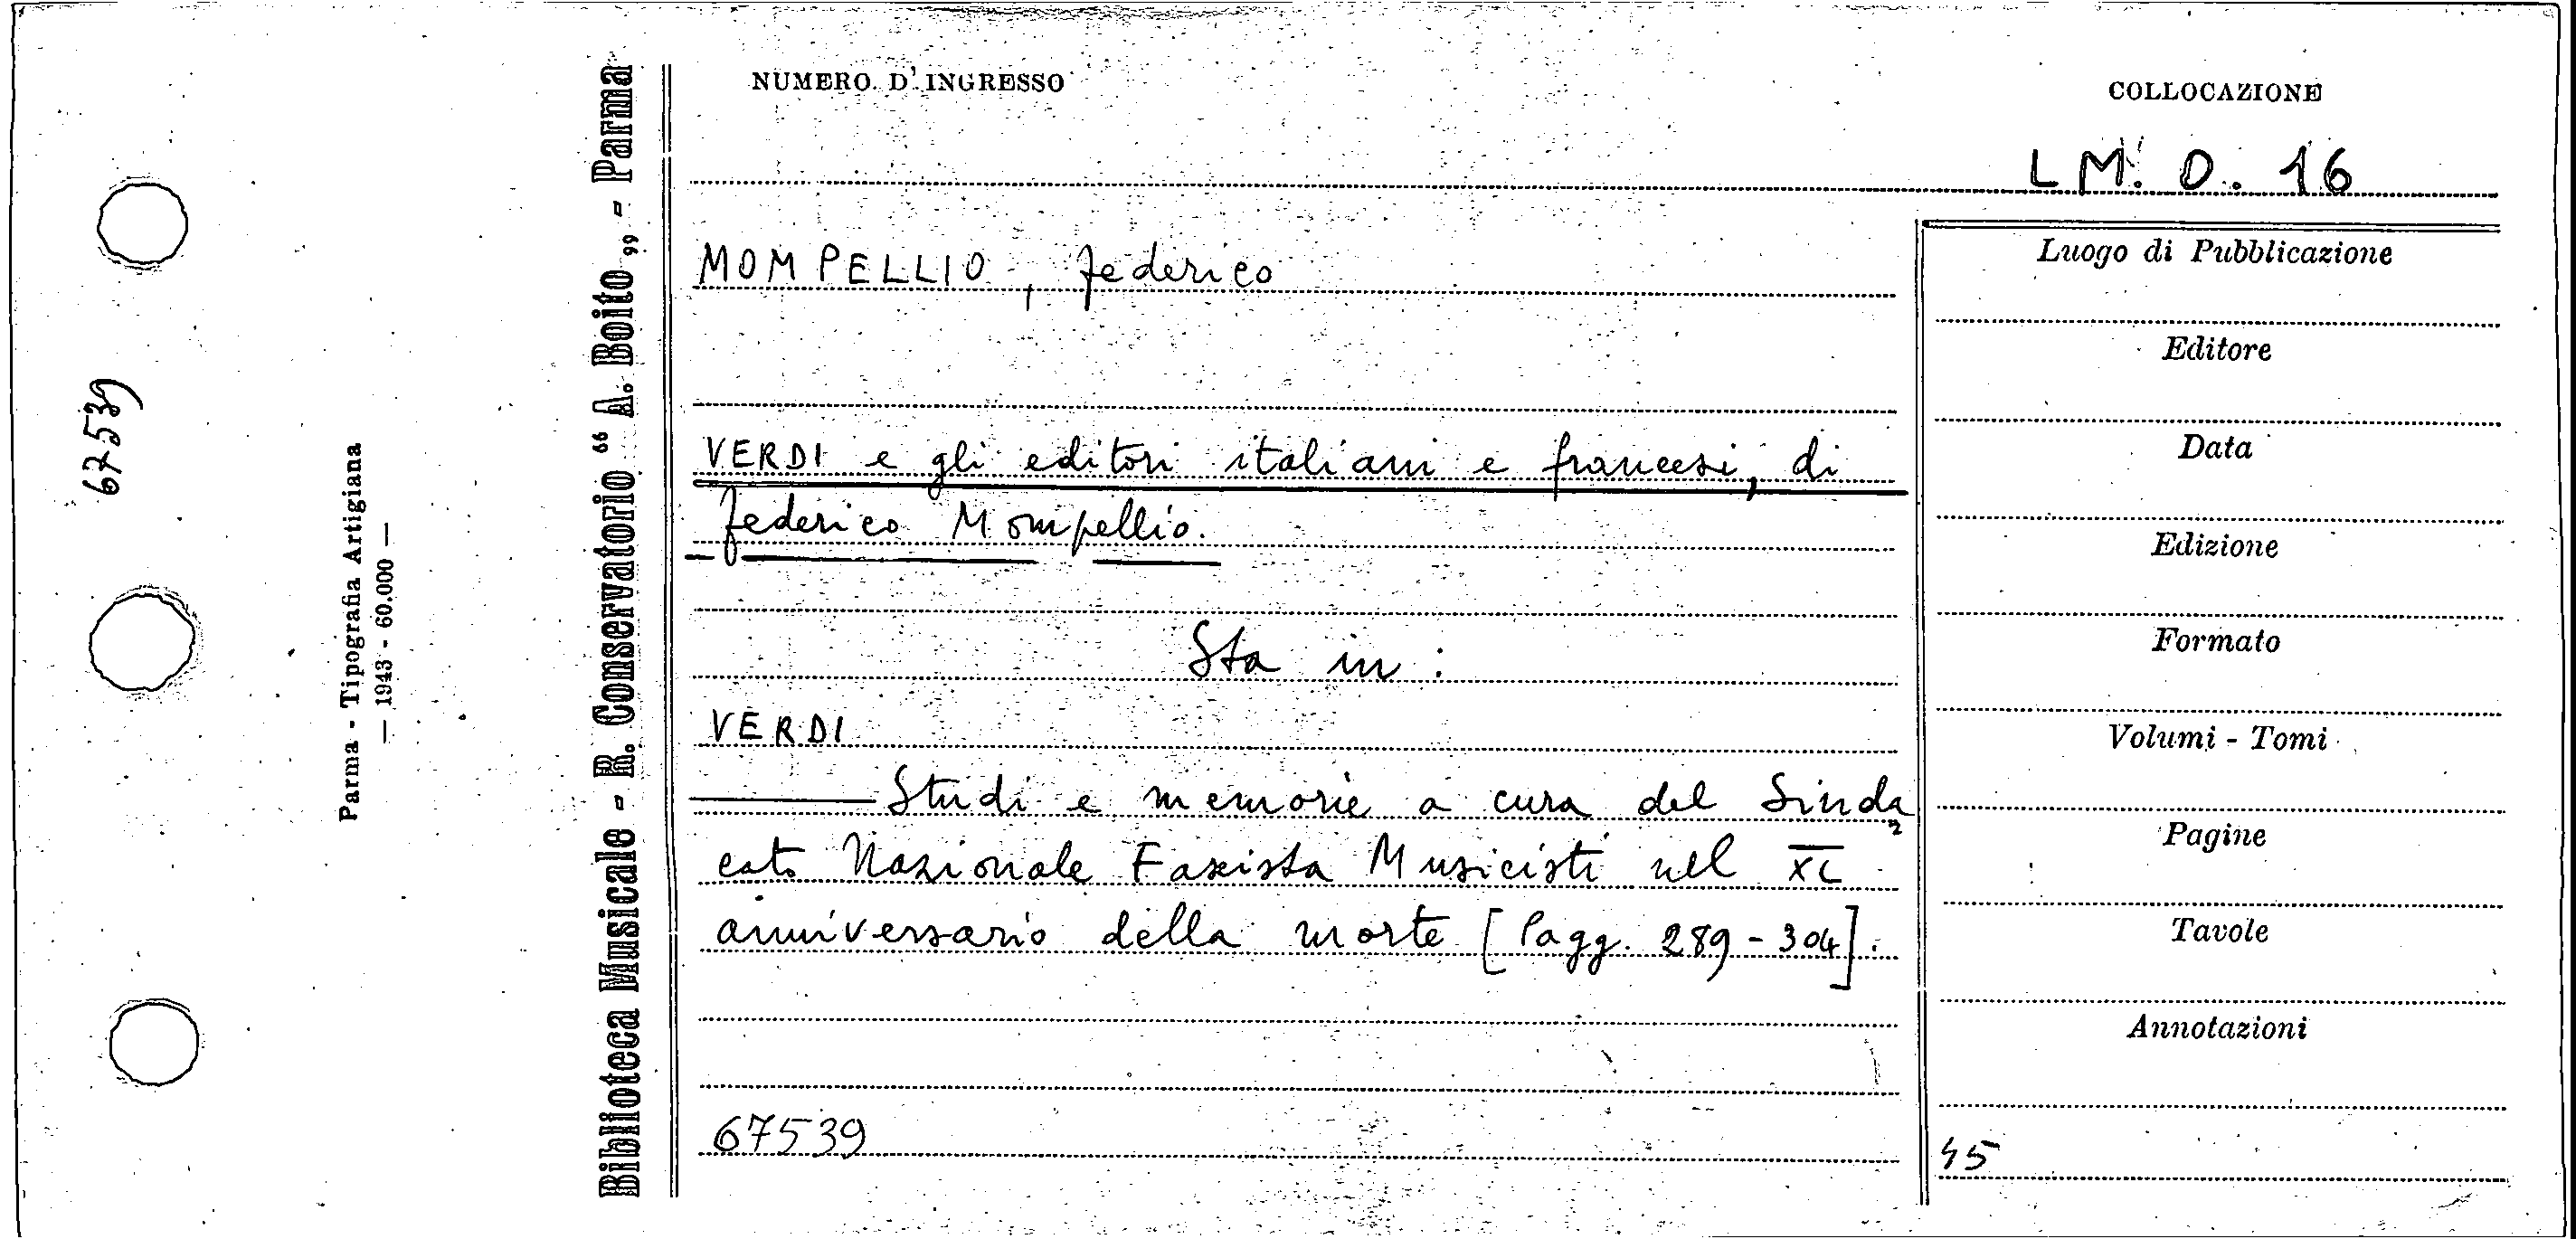 67539
Parma - Tipografia Artigiana
— 1943 - 60.000 —
Biblioteca Musicale - R. Conservatorio “ A. Boito „ - Parma
NUMERO D' INGRESSO
COLLOCAZIONE
LM. O. 16
MOMPELLIO, Federico
VERDI e gli editori italiani e francesi, di
Federico Mompellio.
Sta in :
VERDI
—— Studi e memorie a cura del Sinda
cato Nazionale Fascista Musicisti nel XL
anniversario della morte [Pagg. 289-304].
67539
Luogo di Pubblicazione
Editore
Data
Edizione
Formato
Volumi - Tomi
Pagine
Tavole
Annotazioni